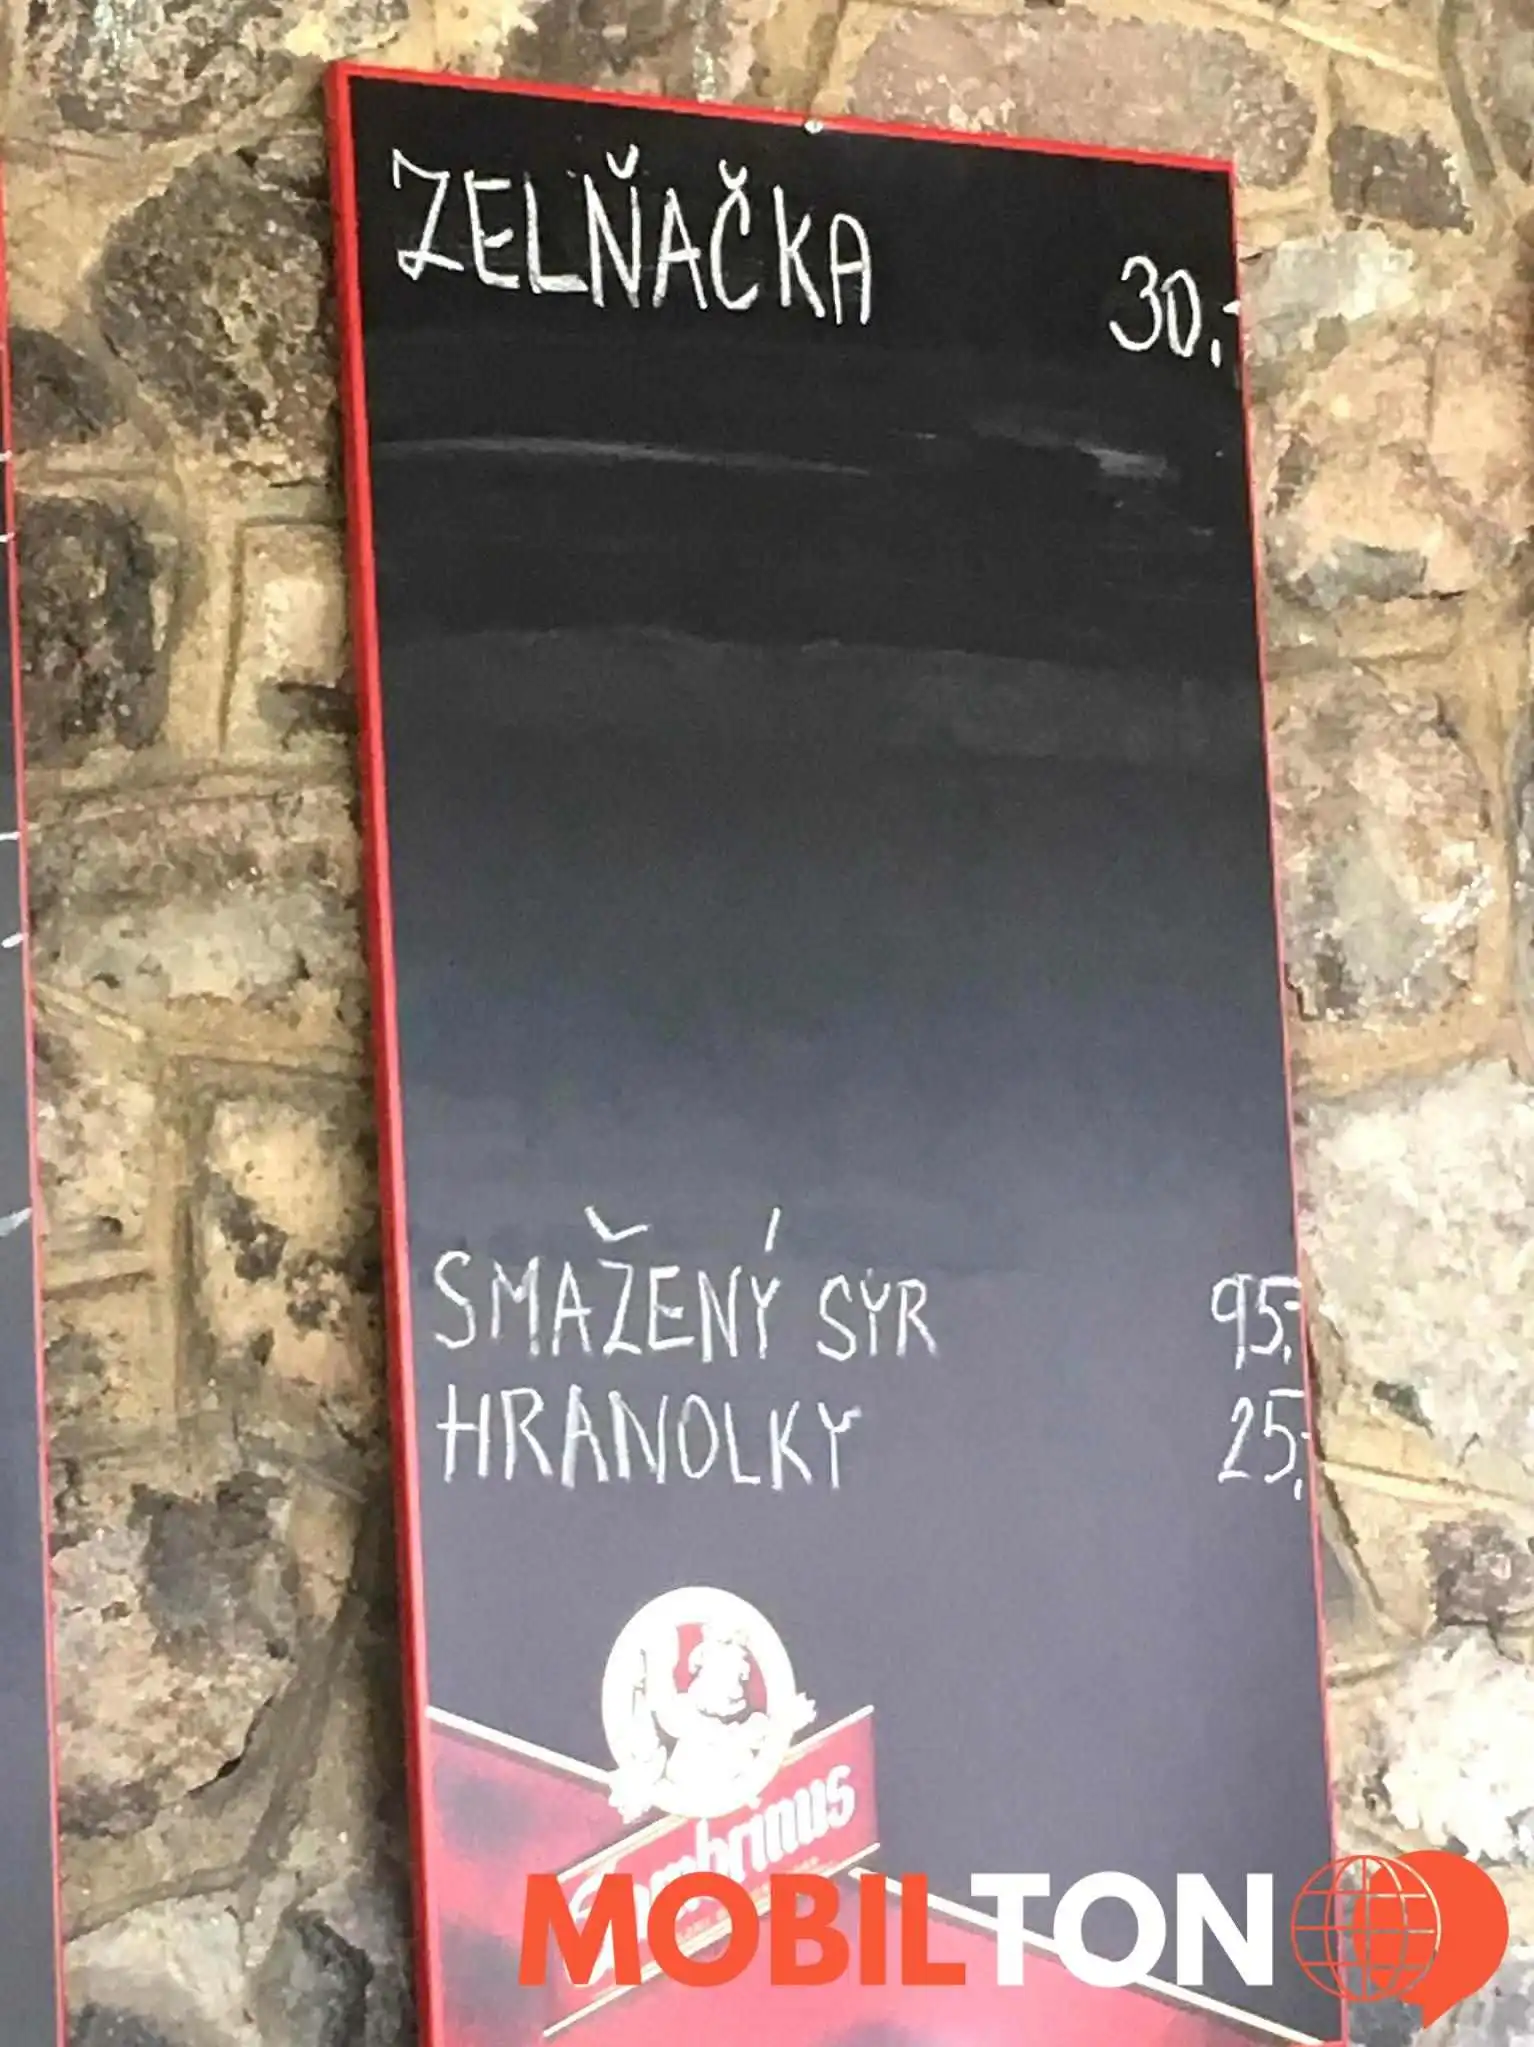 ZELŇAČKA 30,-
SMAŽENÝ SÝR 95,-
HRANOLKY 25,-
Gambrinus
MOBILTON